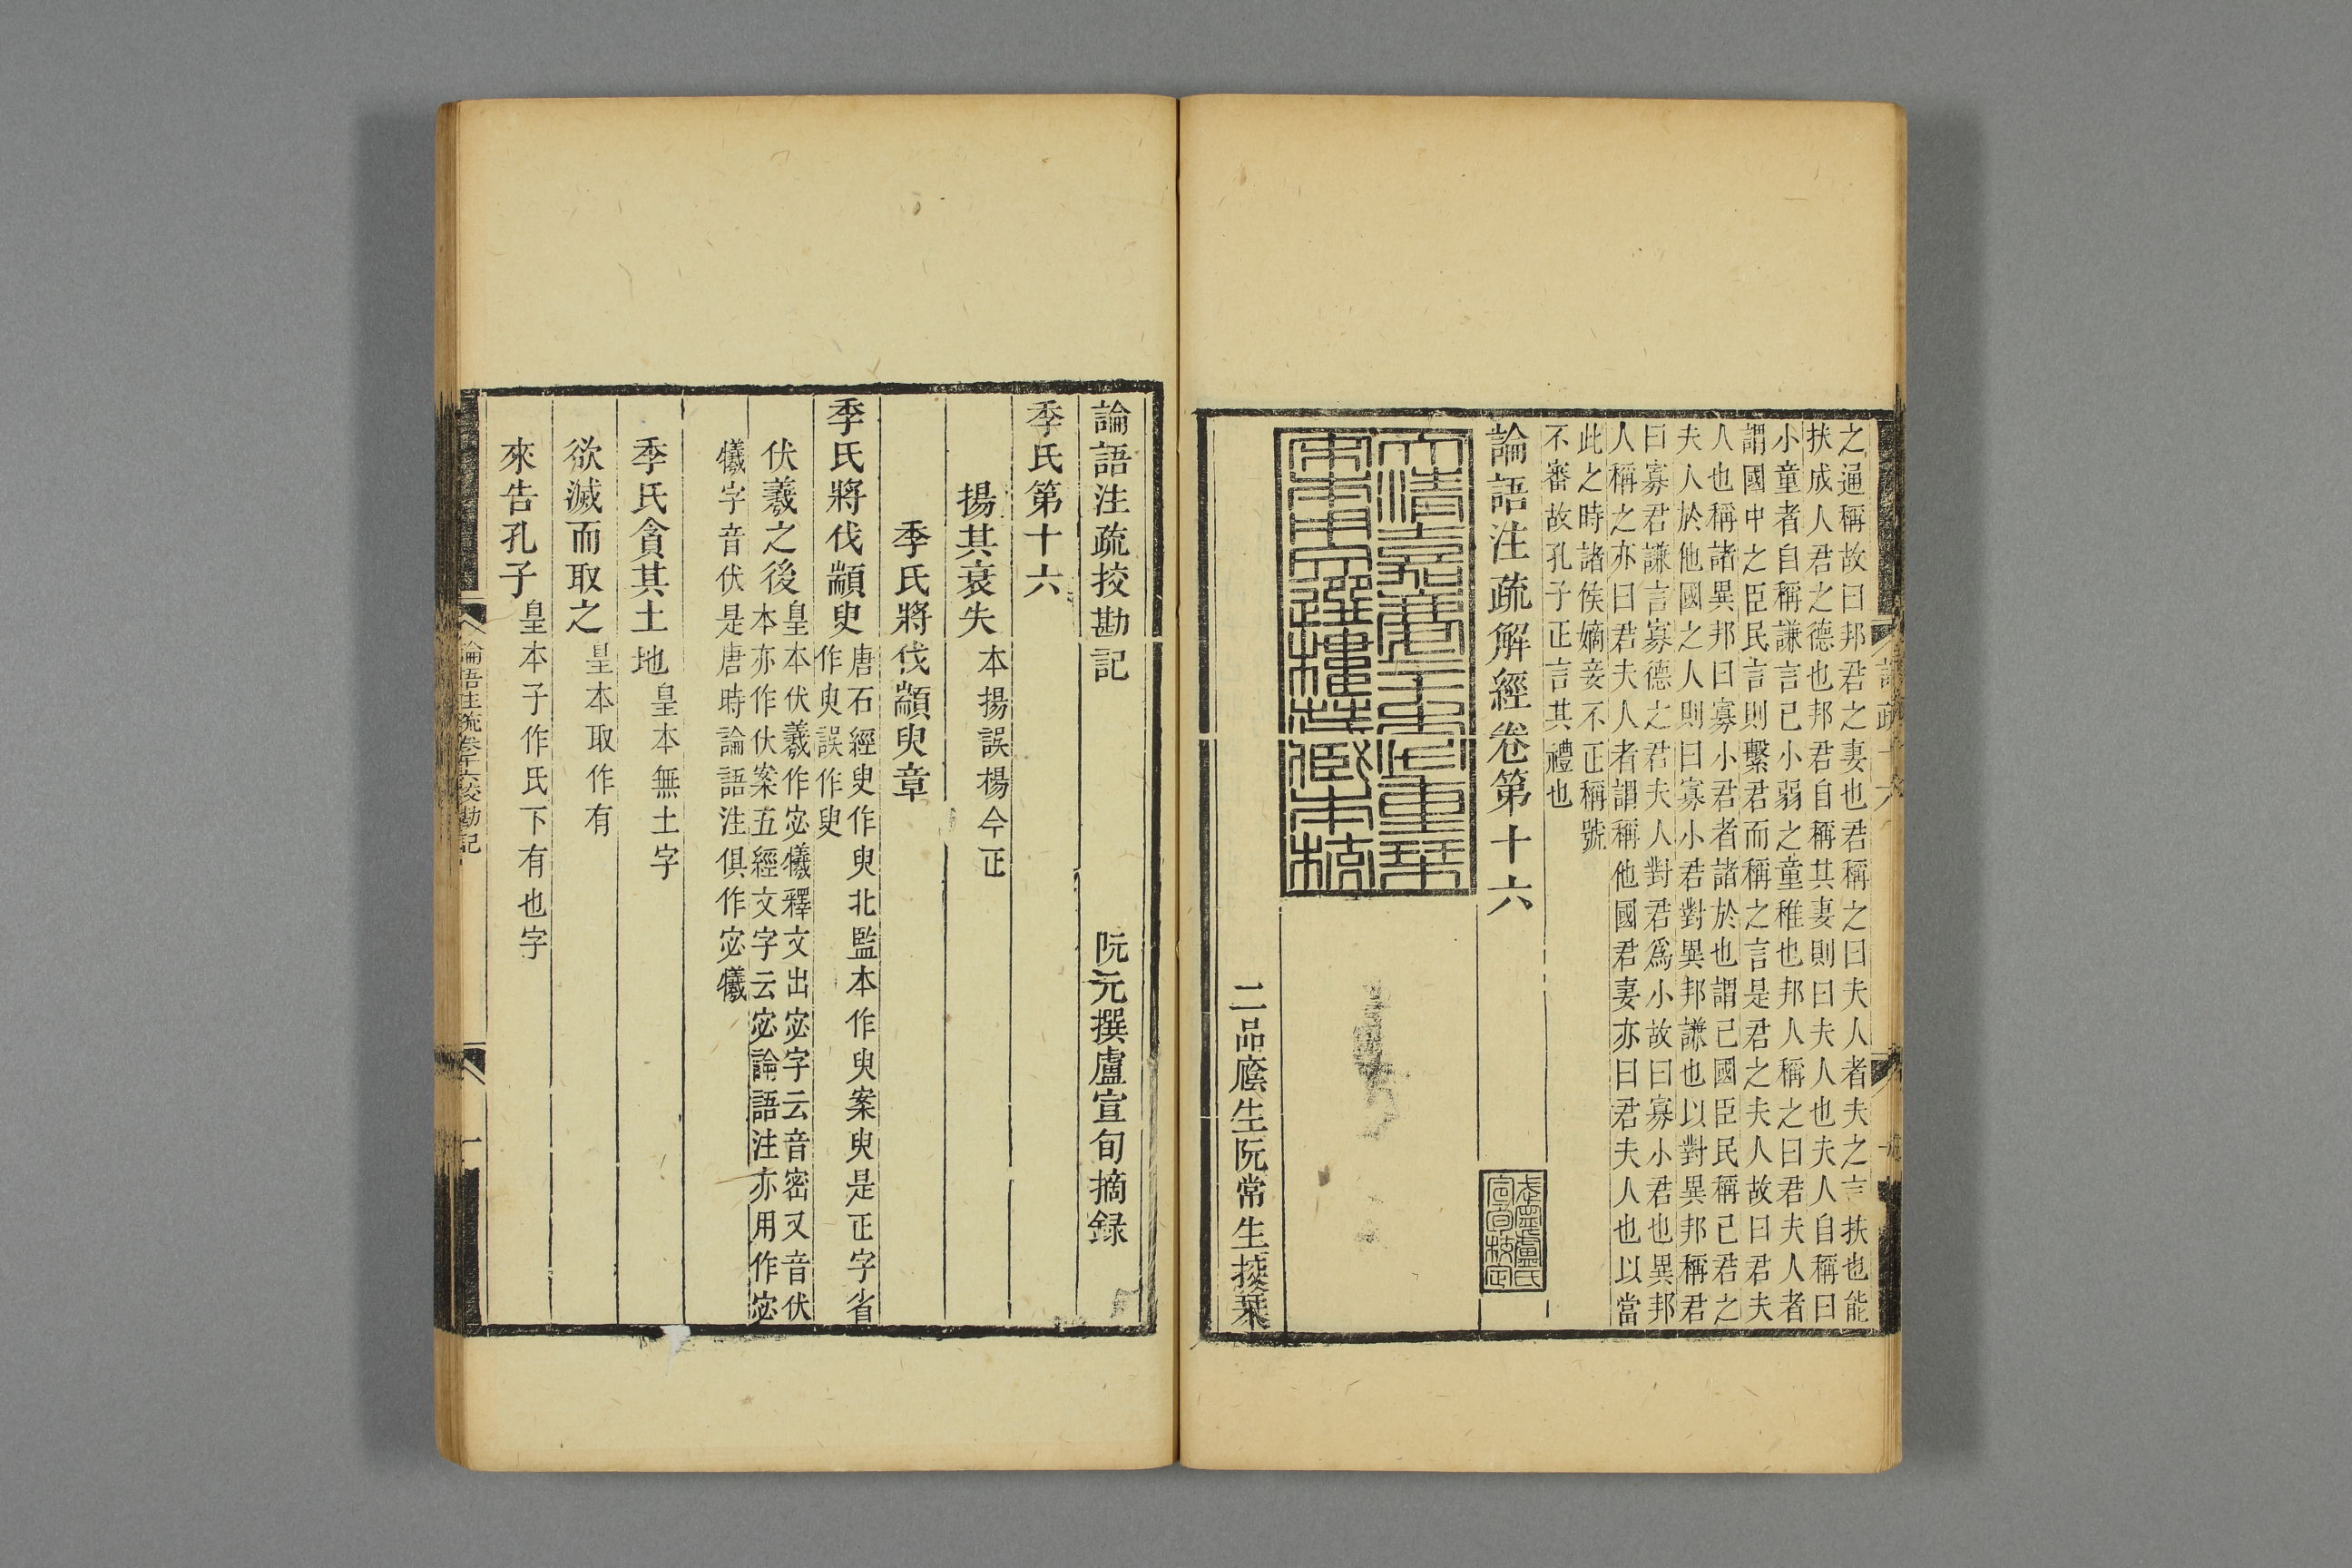 之通稱故曰邦君之妻也君稱之曰夫人者夫之言扶也能
扶成人君之德也邦君自稱其妻則曰夫人也夫人自稱曰
小童者自稱謙言己小弱之童稚也邦人稱之曰君夫人者
謂國中之臣民言則繫君而稱之言是君之夫人故曰君夫
人也稱諸異邦曰寡小君者諸於也謂己國臣民稱己君之
夫人於他國之人則曰寡小君對異邦謙也以對異邦稱君
曰寡君謙言寡德之君夫人對君爲小故曰寡小君也異邦
人稱之亦曰君夫人者謂稱他國君妻亦曰君夫人也以當
此之時諸侯嫡妾不正稱號
不審故孔子正言其禮也
論語注疏解經卷第十六
大清嘉慶二十年重栞
宋本文選樓藏本挍
二品廕生阮常生挍栞
論語注疏挍勘記
阮元撰盧宣旬摘録
季氏第十六
揚其衰失
本揚誤楊今正
季氏將伐顓臾章
季氏將伐顓臾
唐石經臾作㬰北監本作㬰案㬰是正字省
作臾誤作叟
伏羲之後
皇本伏羲作宓犧釋文出宓字云音密又音伏
本亦作伏案五經文字云宓論語注亦用作宓
犧字音伏是唐時論語注俱作宓犧
季氏貪其土地
皇本無土字
欲滅而取之
皇本取作有
來告孔子
皇本子作氏下有也字
論語注疏卷十六挍勘記
一